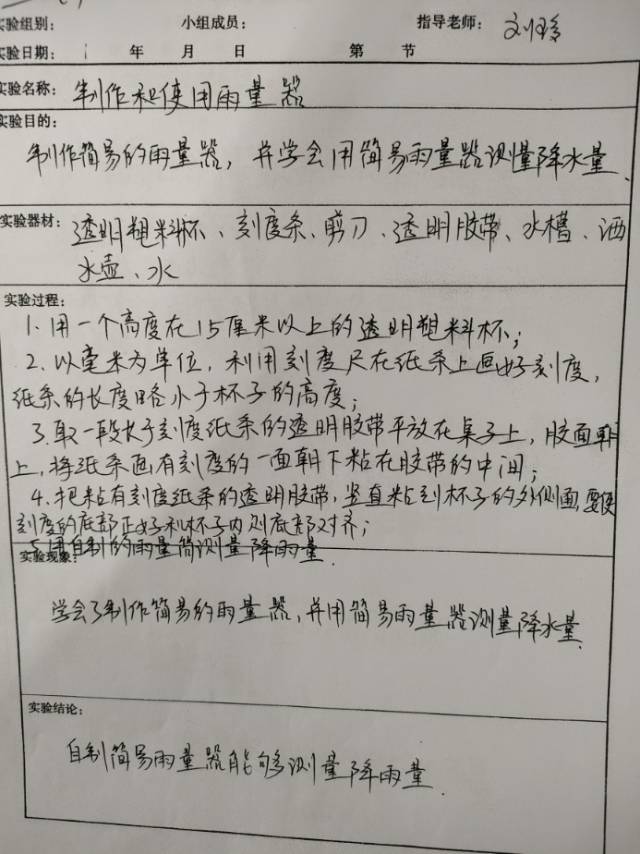 实验组别： 小组成员： 指导老师：
实验日期： 年 月 日 第 节
实验名称：制作和使用雨量器
实验目的：
制作简易的雨量器，并学会用简易雨量器测量降水量.
实验器材：透明粗料杯、刻度条、剪刀、透明胶带、水槽、洒
水壶、水
实验过程：
1.用一个高度在15厘米以上的透明粗料杯；
2.以毫米为单位，利用刻度尺在纸条上画好刻度，
纸条的长度略小于杯子的高度；
3.取一段长于刻度纸条的透明胶带平放在桌子上，胶面朝
上，将纸条画有刻度的一面朝下粘在胶带的中间；
4.把粘有刻度纸条的透明胶带，竖直粘到杯子的外侧面，要使
刻度的底部正好和杯子内侧底部对齐；
5.用自制的雨量筒测量降雨量.
实验现象：
学会了制作简易的雨量器，并用简易雨量器测量降水量.
实验结论：
自制简易雨量器能够测量降雨量.